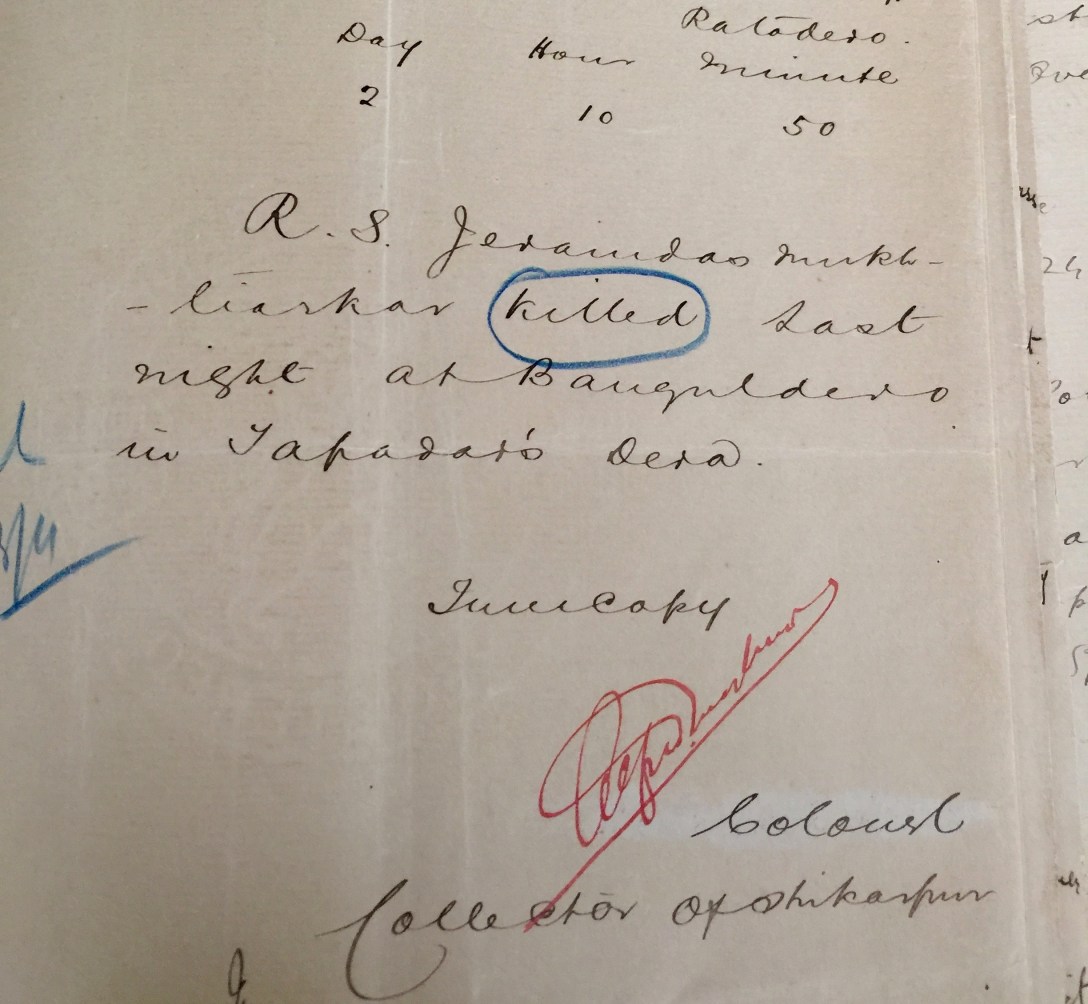 Ratodero.
Day Hour Minute
2 10 50
R. S. Jeramdas Mukh-
- tiarkar killed last
night at Banguldero
in Tapadar's Dera.
True Copy
Colonel
Collector of Shikarpur